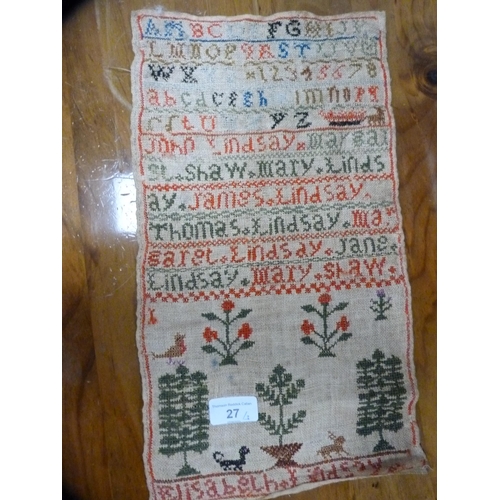 ABC FG
LMNOP QRST
WX 12345678
abcd efgh lmnopq
rstu yz
John Lindsay Margar
et Shaw Mary Linds
ay James Lindsay
Thomas Lindsay Mar
garet Lindsay Jane
Lindsay Mary Shaw
27
Elisabeth